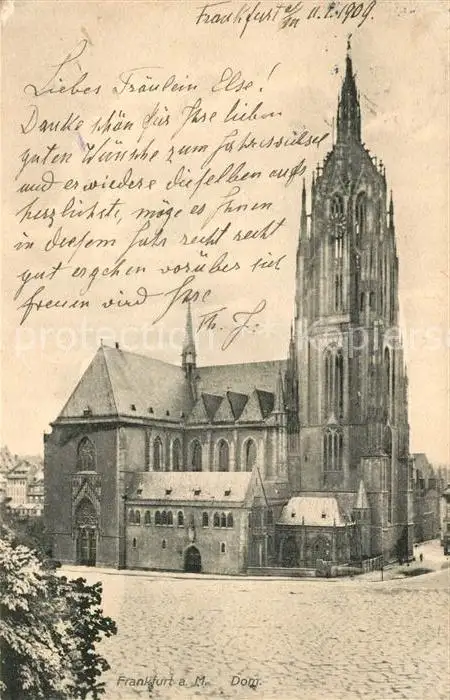 Frankfurt a/M 11.1.1909.
Liebes Fräulein Else!
Danke schön für Ihre lieben
guten Wünsche zum Jahreswechsel
und erwiedere dieselben aufs
herzlichste, möge es Ihnen
in diesem Jahr recht recht
gut ergehen worüber sich
freuen wird Ihre
Th. J.
Frankfurt a. M. Dom.